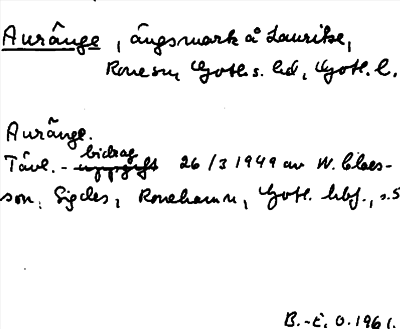 Auränge, ängsmark å Laurikse,
Rone sn, Gotl. s. hd, Gotl. l.
Auränge.
bidrag
Tävl. - uppgift 26/3 1949 av W. Claes-
son, Sigdes, Ronehamn, Gotl. hbf., s.5
B.-E. O. 1961.